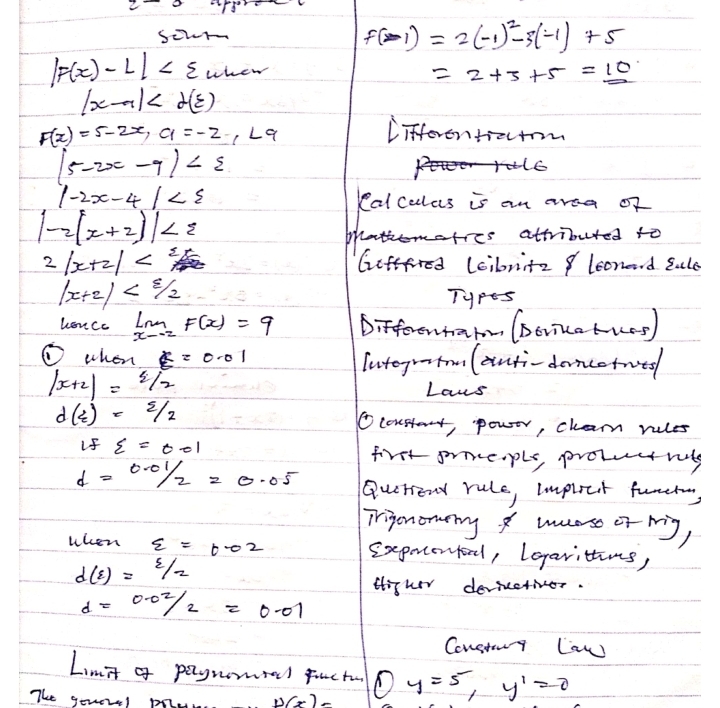 ε - δ approach
Soln
|F(x) - L| < ε when
|x-a| < d(ε)
F(x) = 5-2x, a = -2, L9
|5-2x -9| < ε
|-2x-4| < ε
|-2(x+2)| < ε
2|x+2| < ε
|x+2| < ε/2
hence Lim x→-2 F(x) = 9
① when ε = 0.01
|x+2| = ε/2
d(ε) = ε/2
if ε = 0.01
d = 0.01/2 = 0.05
when ε = 0.02
d(ε) = ε/2
d = 0.02/2 = 0.01
Limit of polynomial function
The general P(x) =
F(-1) = 2(-1)²-3(-1) +5
= 2+3+5 = 10
Differentiation
Power rule
Calculus is an area of
mathematics attributed to
Gottfried Leibnitz & Leonard Eule
Types
Differentiation (Derivatives)
Integration (anti-derivatives)
Laws
① constant, power, chain rules
first principle, product rule
Quotient rule, implicit function,
Trigonometry & inverse of trig,
Exponential, Logarithms,
Higher derivatives.
Constant Law
① y = 5, y' = 0